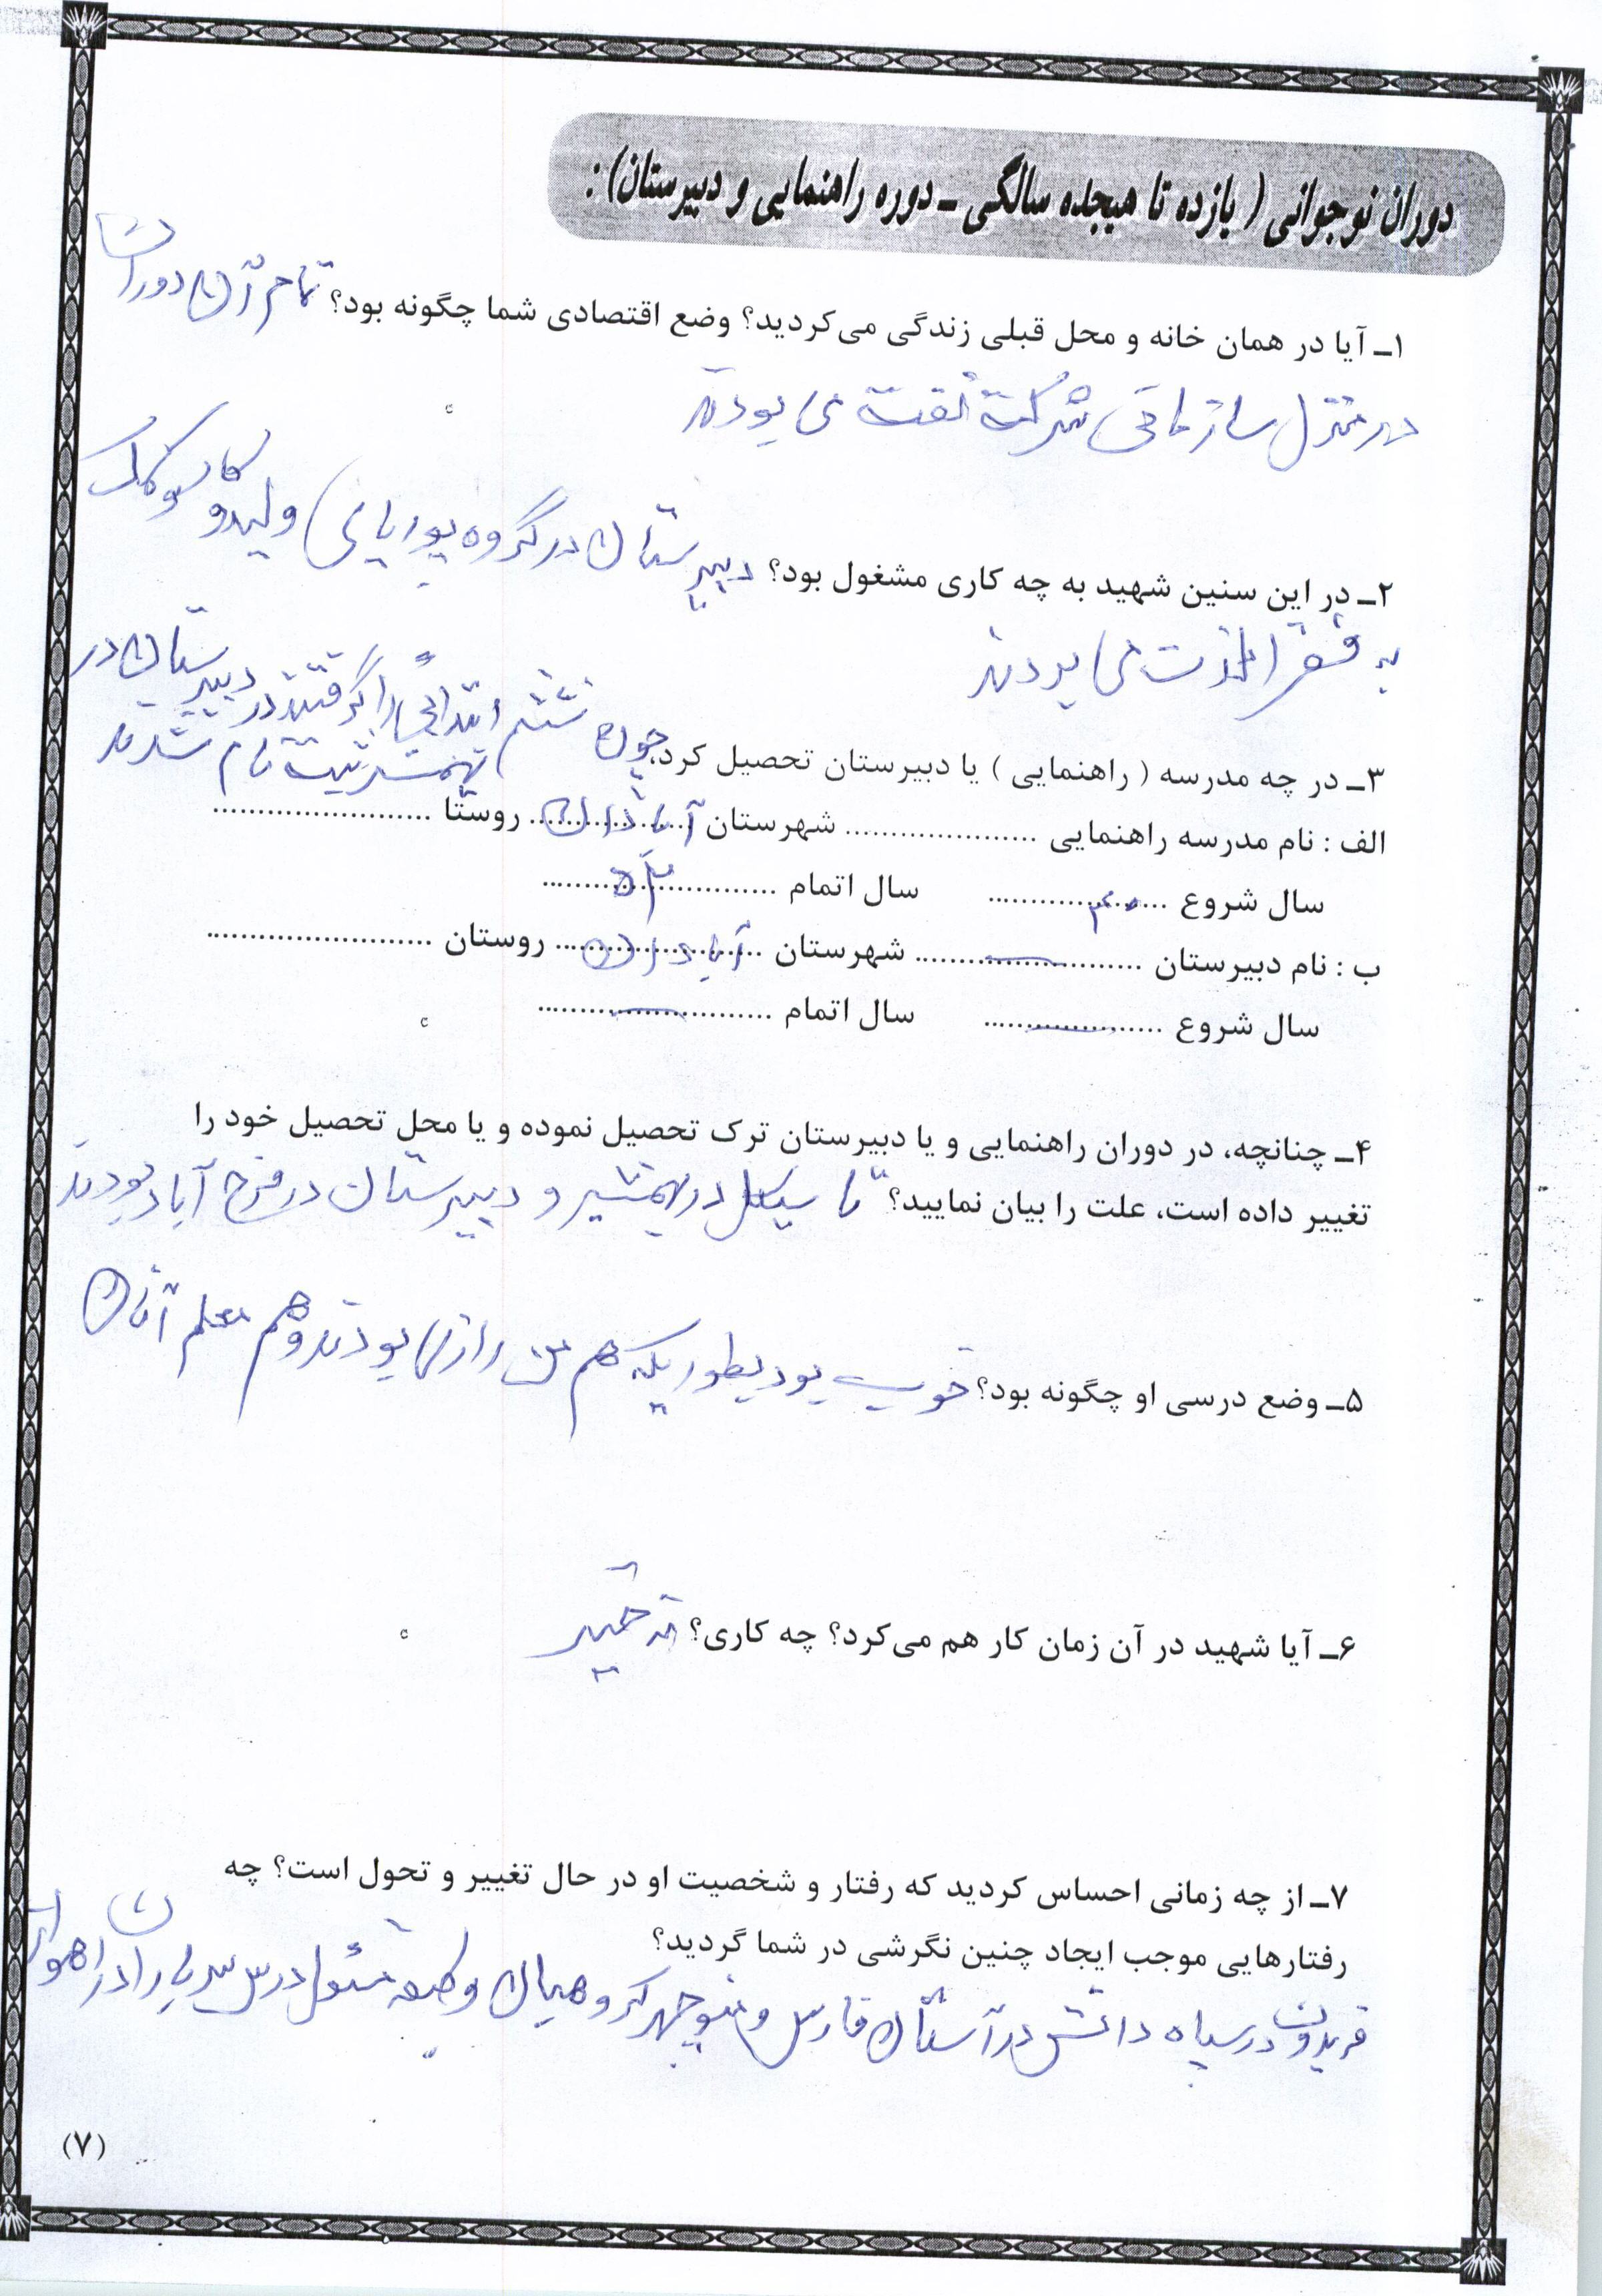 دوران نوجوانی ( یازده تا هیجده سالگی ـ دوره راهنمایی و دبیرستان) :
۱ـ آیا در همان خانه و محل قبلی زندگی می‌کردید؟ وضع اقتصادی شما چگونه بود؟ تمام آن دوران
در منزل سازمانی شرکت نفت می بودند
۲ـ در این سنین شهید به چه کاری مشغول بود؟ دبیرستان در گروه پوریای ولی و کمک
به فقرا می بودند
۳ـ در چه مدرسه ( راهنمایی ) یا دبیرستان تحصیل کرد، چون ششم ابتدائی را گرفتند در دبیرستان در
بهمنشیر ثبت نام شدند
الف : نام مدرسه راهنمایی ..................... شهرستان آبادان روستا ........................
سال شروع ۴۰ سال اتمام
ب : نام دبیرستان — شهرستان آبادان روستان .........................
سال شروع — سال اتمام —
۴ـ چنانچه، در دوران راهنمایی و یا دبیرستان ترک تحصیل نموده و یا محل تحصیل خود را
تغییر داده است، علت را بیان نمایید؟ تا سیکل در بهمنشیر و دبیرستان در فرح آباد بودند
۵ـ وضع درسی او چگونه بود؟ خوب بود بطوریکه هم من راضی بودند و هم معلم آنان
۶ـ آیا شهید در آن زمان کار هم می‌کرد؟ چه کاری؟ نه خیر
۷ـ از چه زمانی احساس کردید که رفتار و شخصیت او در حال تغییر و تحول است؟ چه
رفتارهایی موجب ایجاد چنین نگرشی در شما گردید؟
فریدون در سپاه دانش در آستان فارس و منوچهر گروهبان وظیفه مسئول درس سربازان در اهواز
(۷)